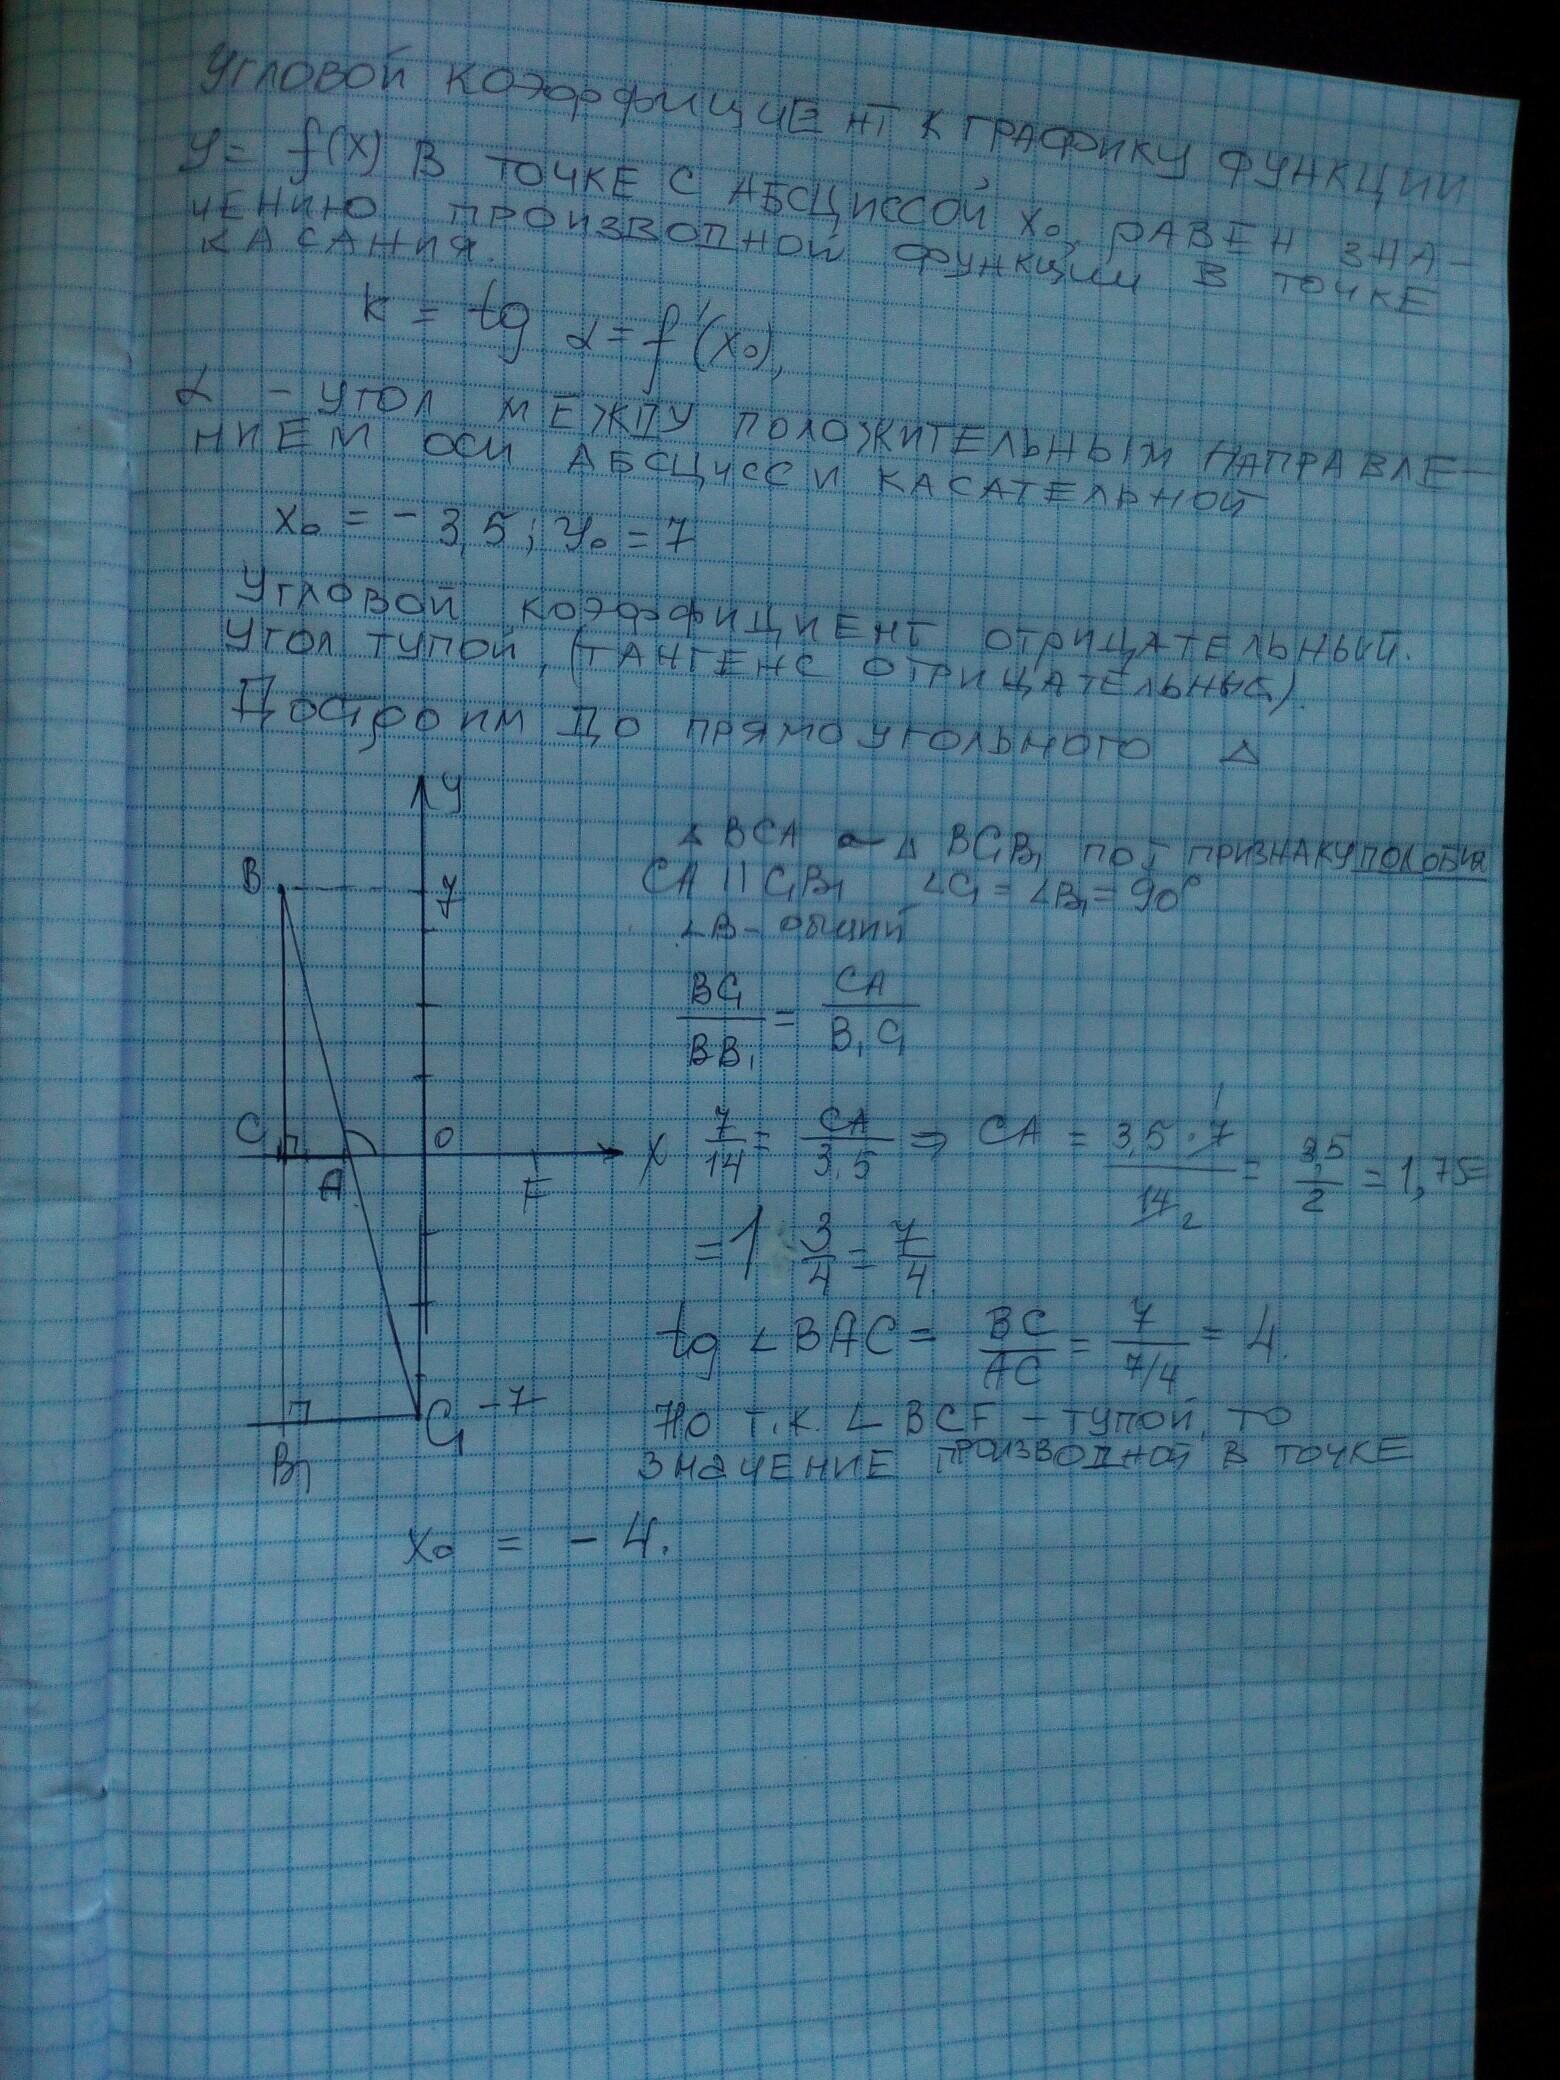 Угловой коэффициент к графику функции
y = f(x) в точке с абсциссой x₀, равен зна-
чению производной функции в точке
касания.
k = tg α = f'(x₀),
α - угол между положительным направле-
нием оси абсцисс и касательной
x₀ = -3,5; y₀ = 7
Угловой коэффициент отрицательный.
Угол тупой, (тангенс отрицательный).
Достроим до прямоугольного Δ
y
B
7
C
A
O
F
X
C₁ -7
B₁
Δ BCA ~ Δ BC₁B₁ по I признаку подобия
CA || C₁B₁ ∠C₁ = ∠B₁ = 90°
∠B - общий
BC/BB₁ = CA/B₁C₁
7/14 = CA/3,5 => CA = 3,5·7/14 = 3,5/2 = 1,75=
1
2
= 1 3/4 = 7/4
tg ∠BAC = BC/AC = 7/7/4 = 4.
Но т.к. ∠ BCF - тупой, то
значение производной в точке
x₀ = -4.